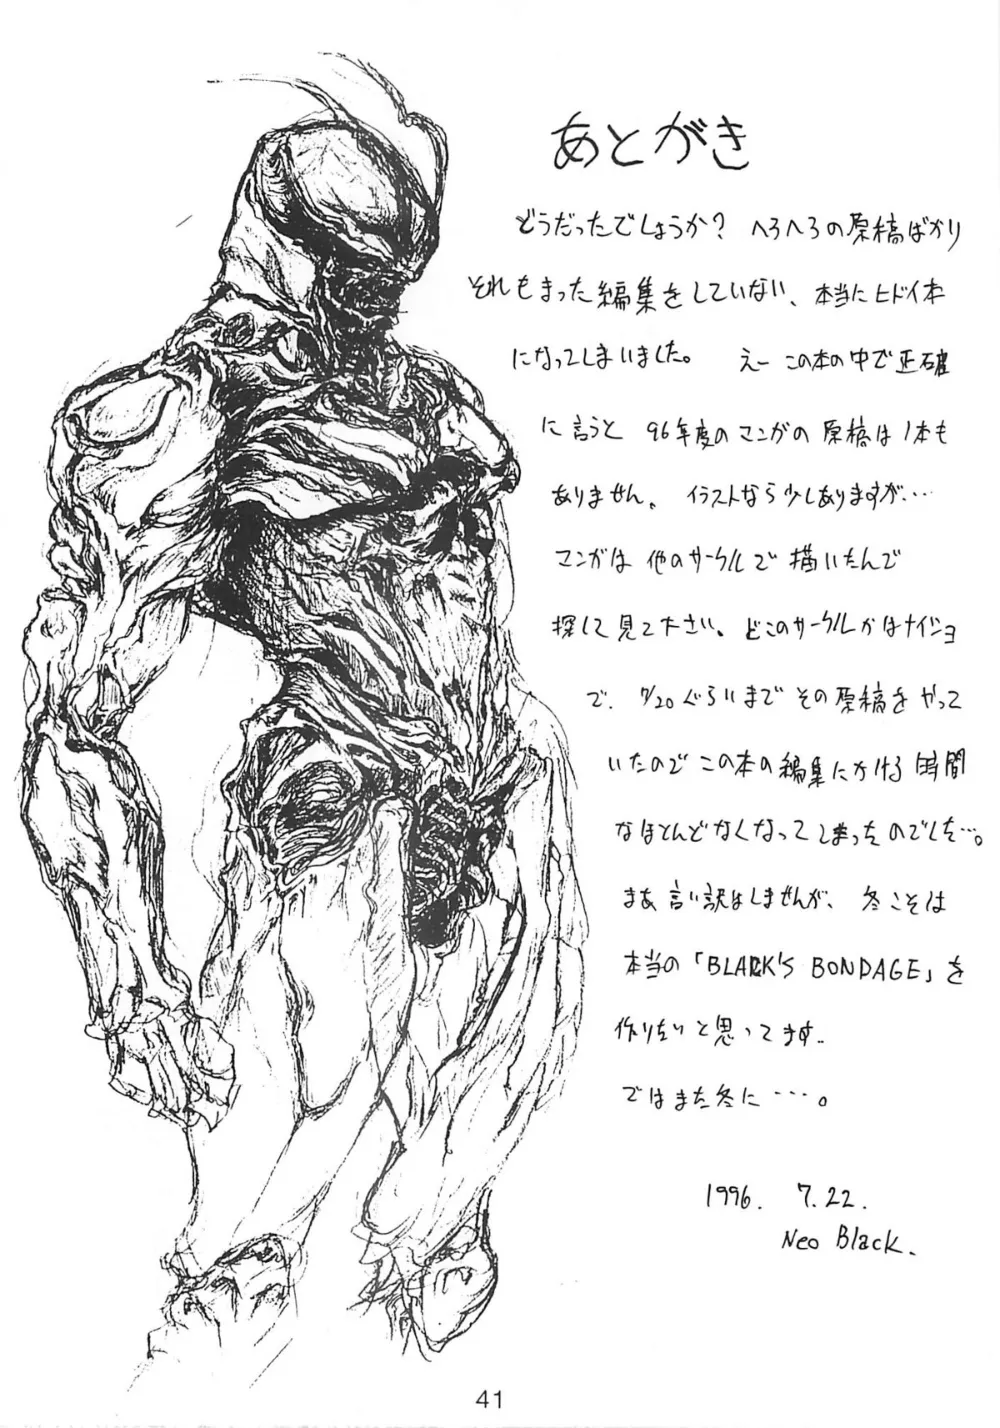 あとがき
どうだったでしょうか? へろへろの原稿ばかり
それもまった編集をしていない、本当にヒドイ本
になってしまいました。 えー この本の中で正確
に言うと 96年度のマンガの原稿は1本も
ありません。 イラストなら少しありますが…
マンガは他のサークルで描いたんで
探して見て下さい。どこのサークルかはナイショ
で、7/20ぐらいまでその原稿をやって
いたのでこの本の編集にかける時間
なほとんどなくなってしまったのでした…。
まあ言い訳はしませんが、冬こそは
本当の「BLACK'S BONDAGE」を
作りたいと思ってます。
ではまた冬に…。
1996. 7.22.
Neo Black.
41